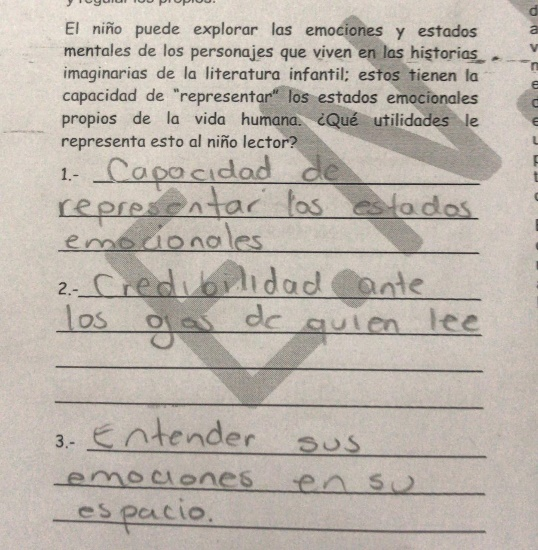 El niño puede explorar las emociones y estados
mentales de los personajes que viven en las historias
imaginarias de la literatura infantil; estos tienen la
capacidad de "representar" los estados emocionales
propios de la vida humana. ¿Qué utilidades le
representa esto al niño lector?
1.- Capacidad de
representar los estados
emocionales
2.- Credibilidad ante
los ojos de quien lee
3.- Entender sus
emociones en su
espacio.